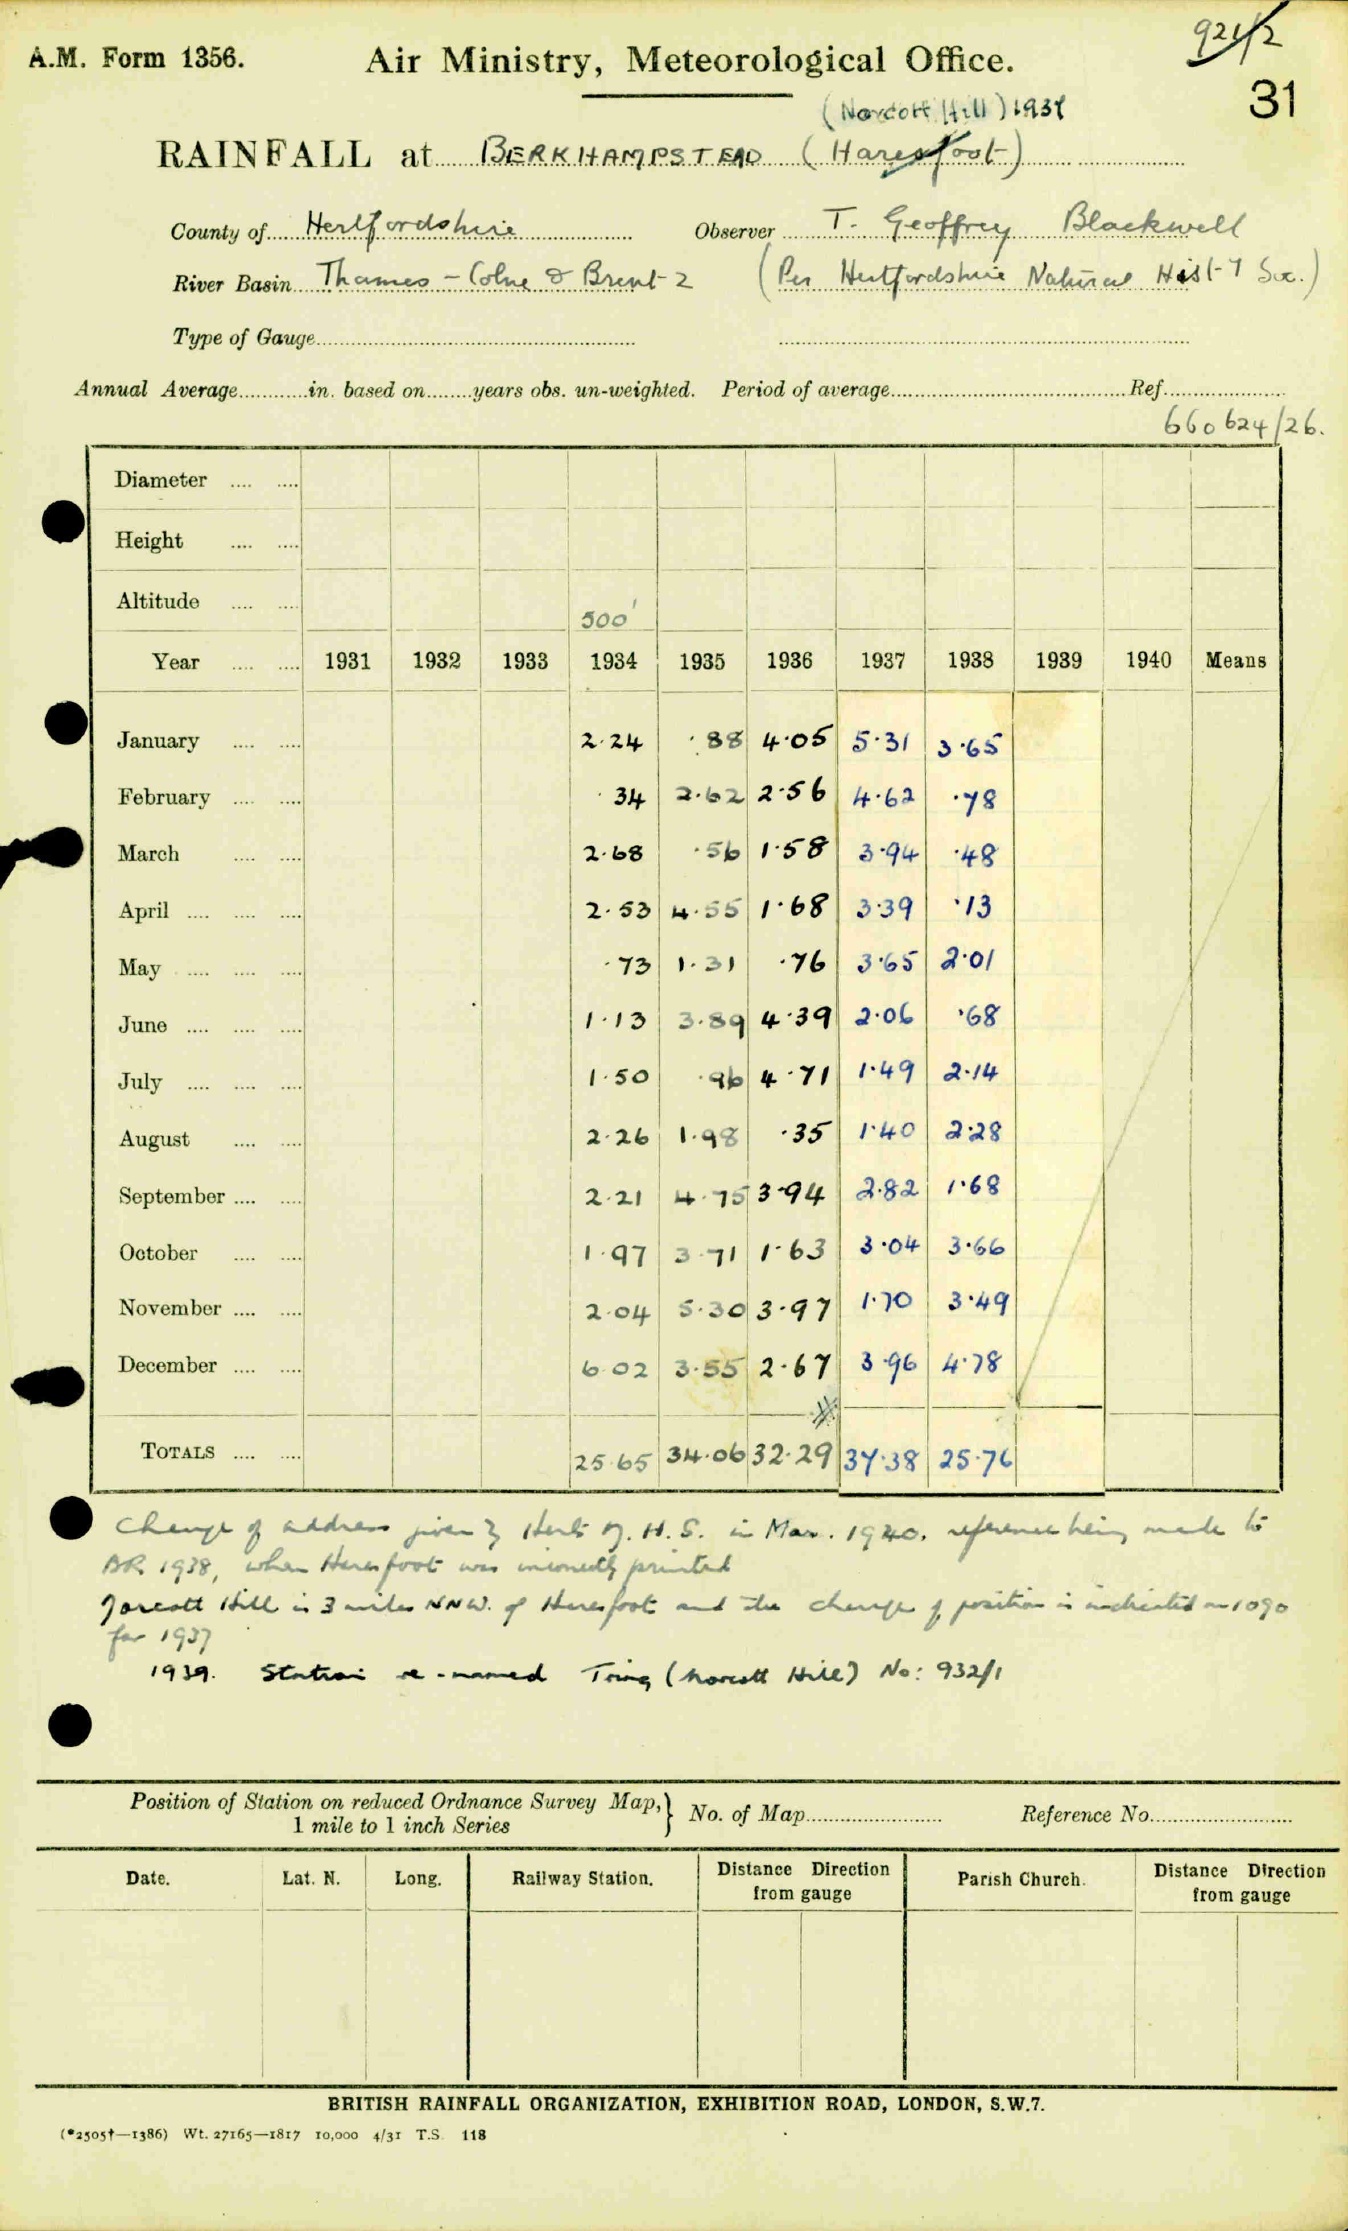 921/2
A.M. Form 1356. Air Ministry, Meteorological Office.
31
(Norcott Hill) 1937
RAINFALL at BERKHAMPSTEAD (Haresfoot)
County of Hertfordshire Observer T. Geoffrey Blackwell
River Basin Thames - Colne & Brent 2 (Per Hertfordshire Natural Hist-y Soc.)
Type of Gauge
Annual Average in. based on years obs. un-weighted. Period of average Ref.
660624/26.
Diameter .... ....
Height .... ....
Altitude .... .... 500'
Year .... .... 1931 1932 1933 1934 1935 1936 1937 1938 1939 1940 Means
January .... .... 2.24 .88 4.05 5.31 3.65
February .... .... .34 2.62 2.56 4.62 .78
March .... .... 2.68 .56 1.58 3.94 .48
April .... .... .... 2.53 4.55 1.68 3.39 .13
May .... .... .... .73 1.31 .76 3.65 2.01
June .... .... .... 1.13 3.89 4.39 2.06 .68
July .... .... .... 1.50 .96 4.71 1.49 2.14
August .... .... 2.26 1.98 .35 1.40 2.28
September .... .... 2.21 4.75 3.94 2.82 1.68
October .... .... 1.97 3.71 1.63 3.04 3.66
November .... .... 2.04 5.30 3.97 1.70 3.49
December .... .... 6.02 3.55 2.67 3.96 4.78
TOTALS .... .... 25.65 34.06 32.29 37.38 25.76
Change of address given by Herts N. H. S. in Mar. 1940. reference being made to
BR 1938, when Haresfoot was incorrectly printed
Norcott Hill is 3 miles NNW. of Haresfoot and the change of position is indicated on 1090
for 1937
1939. Station re-named Tring (Norcott Hill) No: 932/1
Position of Station on reduced Ordnance Survey Map, } No. of Map Reference No.
1 mile to 1 inch Series
Date. Lat. N. Long. Railway Station. Distance Direction from gauge Parish Church. Distance Direction from gauge
BRITISH RAINFALL ORGANIZATION, EXHIBITION ROAD, LONDON, S.W.7.
(*2505†—1386) Wt. 27165—1817 10,000 4/31 T.S. 118